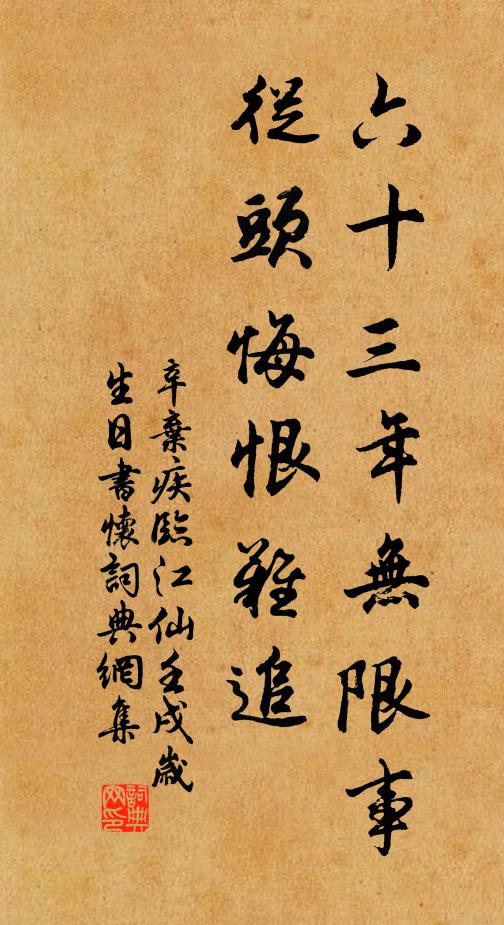 六十三年無限事
從頭悔恨難追
辛棄疾臨江仙壬戌歲
生日書懷詞典網集
詞典
网印